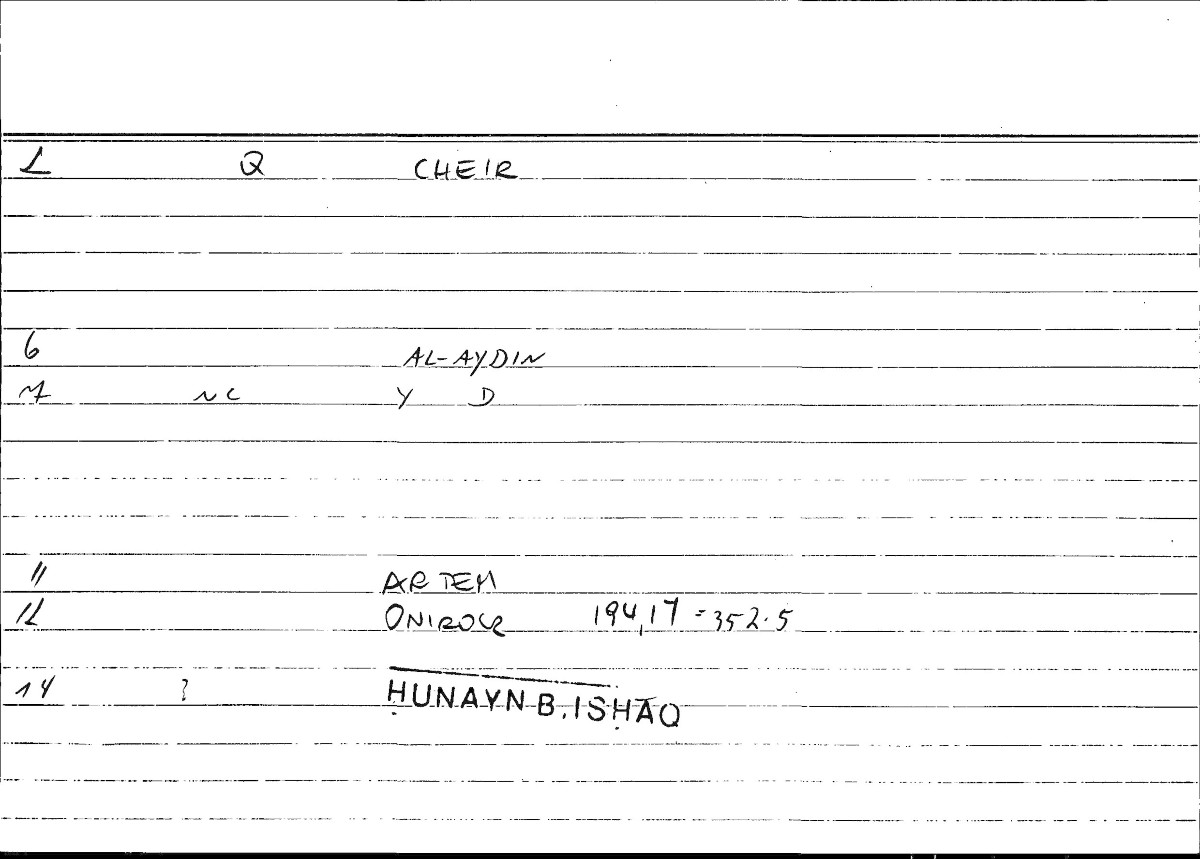 1 Q CHEIR
6 AL-AYDIN
7 NC Y D
11 ARTEM
12 ONIROCR 194,17 = 352.5
14 ? ḤUNAYN B. ISḤĀQ